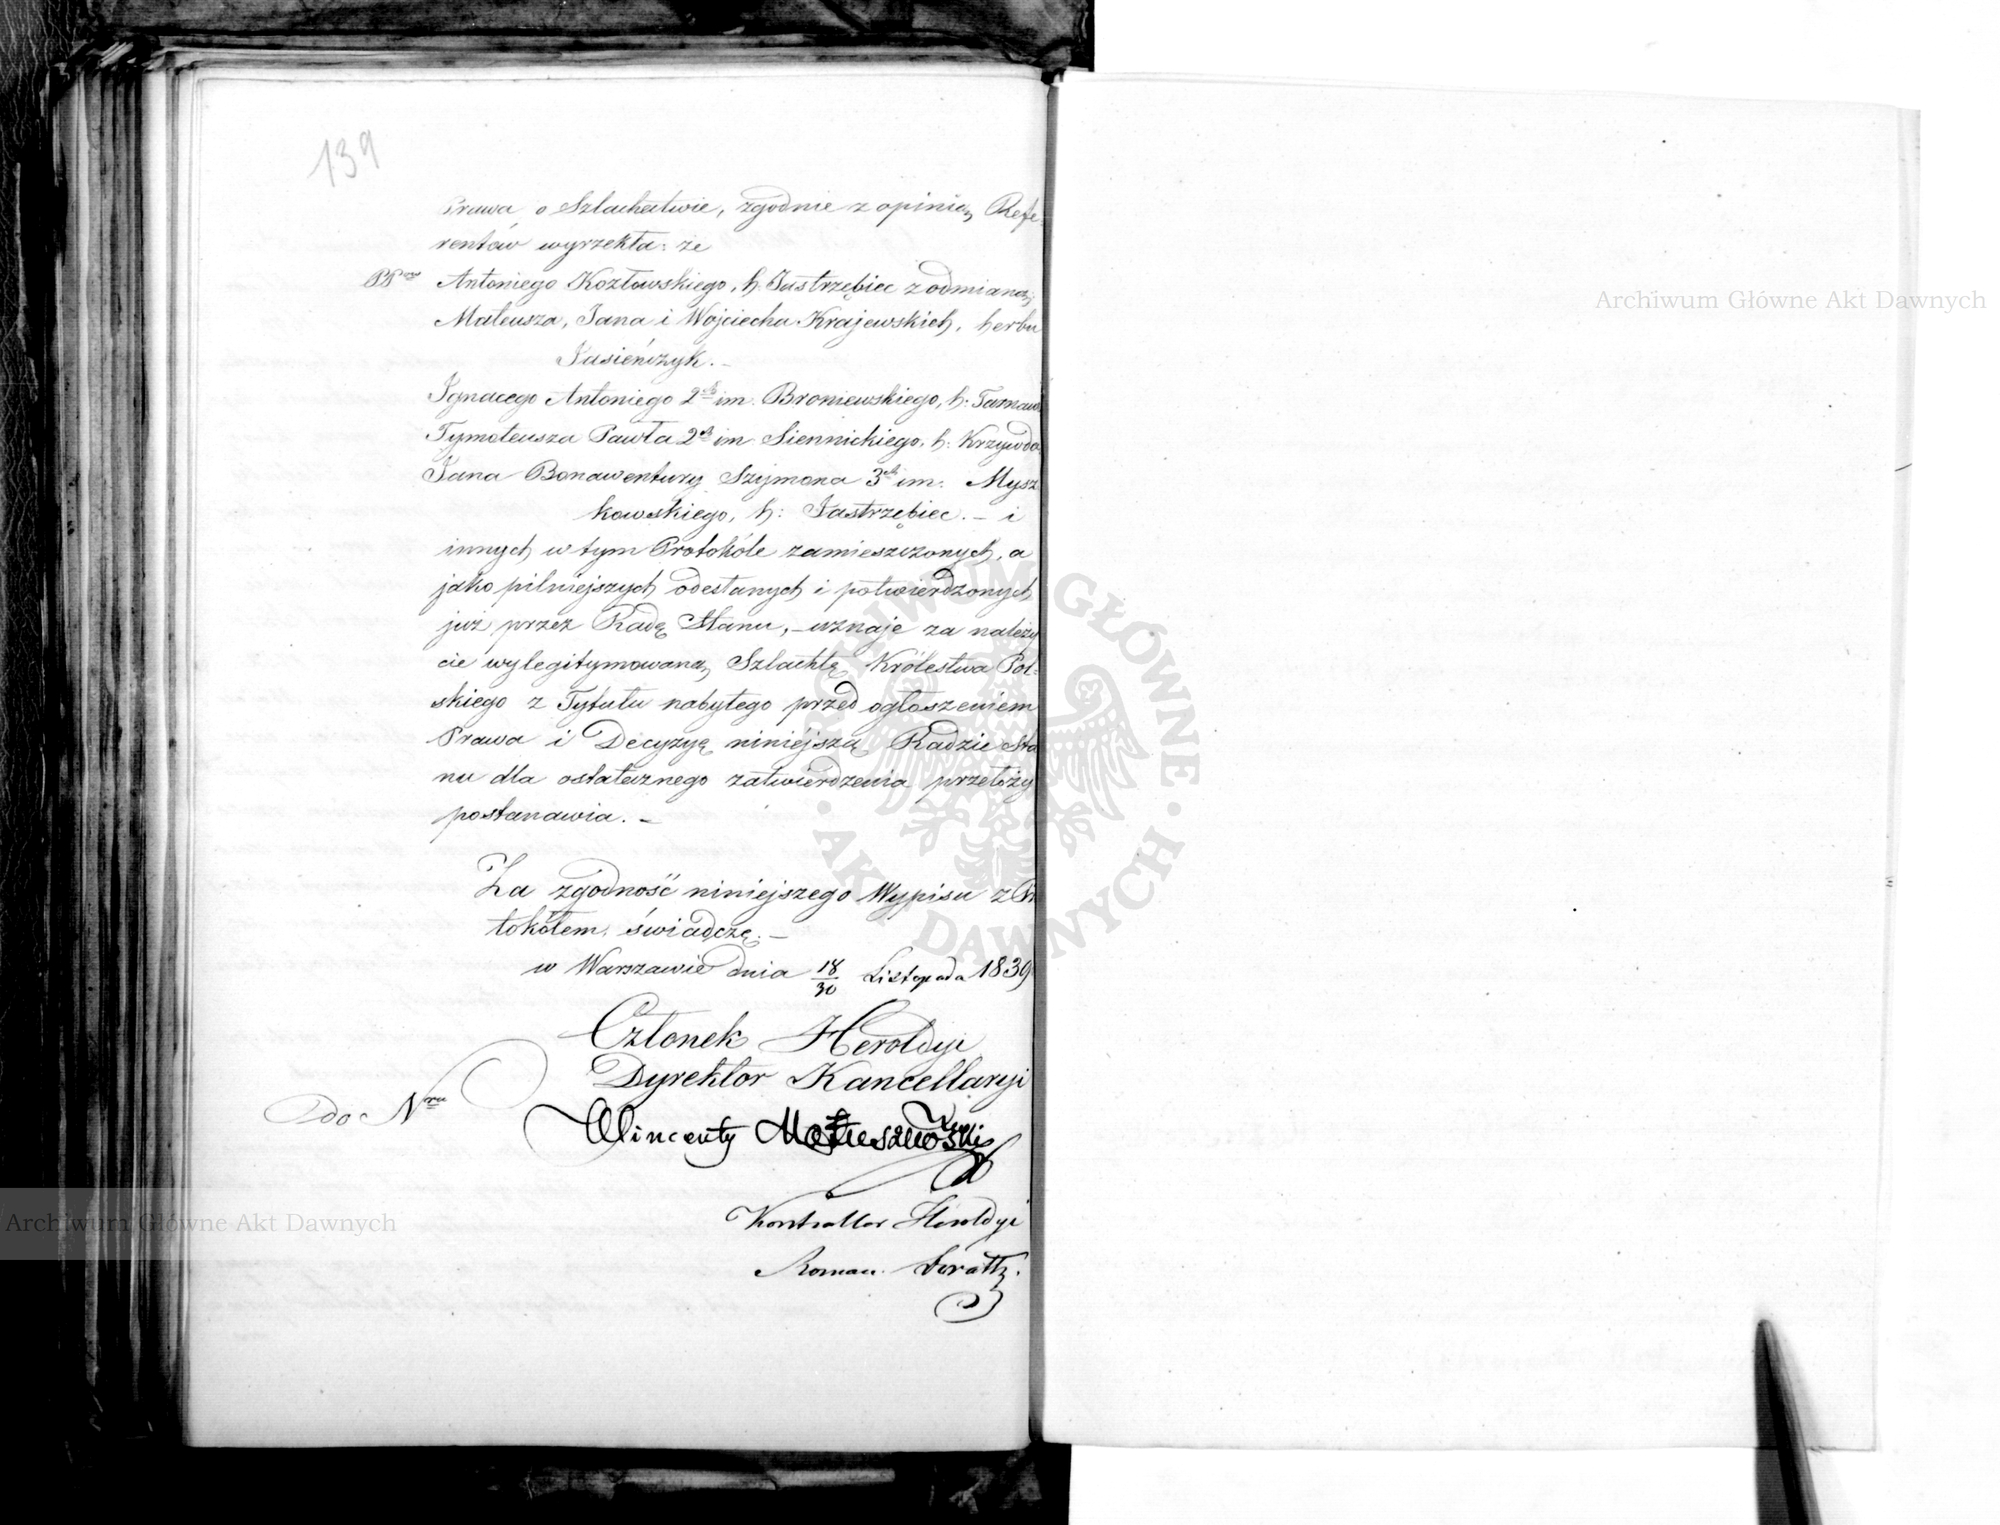 139
Prawa o Szlachectwie, zgodnie z opinią Refe-
rentów wyrzekła: że
PP. Antoniego Kozłowskiego, h. Jastrzębiec z odmianą,
Mateusza, Jana i Wojciecha Krajewskich, herbu
Jasieńczyk. –
Ignacego Antoniego 2ch im. Broniewskiego, h: Tarnawa
Tymoteusza Pawła 2ch im Siennickiego, h: Krzywda
Jana Bonawentury Szymona 3ch im. Mysz-
kowskiego, h: Jastrzębiec. – i
innych w tym Protokóle zamieszczonych, a
jako pilniejszych odesłanych i potwierdzonych
już przez Radę Stanu, – uznaje za należy
cie wylegitymowaną Szlachtę Królestwa Pol-
skiego z Tytułu nabytego przed ogłoszeniem
Prawa i Decyzyę niniejszą Radzie Sta
nu dla ostatecznego zatwierdzenia przełoży
postanawia. –
Za zgodność niniejszego Wypisu z Pro
tokółem, świadczę. –
w Warszawie dnia 18/30 Listopada 1839
Członek Heroldyi
Dyrektor Kancellaryi
do Nru
Wincenty Matuszewski
Kontrollor Heroldyi
Roman
Archiwum Główne Akt Dawnych
Archiwum Główne Akt Dawnych
ARCHIWUM GŁÓWNE · AKT DAWNYCH ·